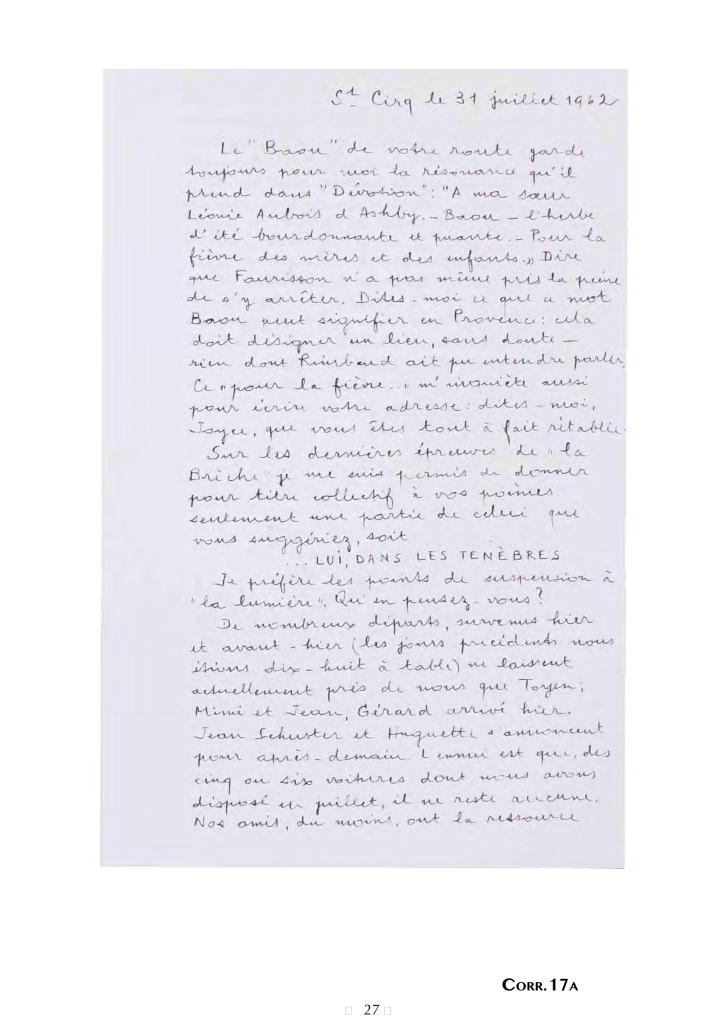 St Cirq le 31 juillet 1962
Le "Baou" de votre route garde
toujours pour moi la résonance qu'il
prend dans "Dévotion": "A ma sœur
Léonie Aubois d'Ashby. – Baou – l'herbe
d'été bourdonnante et puante. – Pour la
fièvre des mères et des enfants." Dire
que Faurisson n'a pas même pris la peine
de s'y arrêter. Dites-moi ce que ce mot
Baou peut signifier en Provence: cela
doit désigner un lieu, sans doute –
rien dont Rimbaud ait pu entendre parler.
Ce "pour la fièvre..." m'inquiète aussi
pour écrire votre adresse: dites-moi,
Joyce, que vous êtes tout à fait rétablie.
Sur les dernières épreuves de "la
Brèche" je me suis permis de donner
pour titre collectif à vos poèmes
seulement une partie de celui que
vous suggériez, soit
... LUI, DANS LES TENÈBRES
Je préfère les points de suspension à
"la lumière". Qu'en pensez-vous?
De nombreux départs, survenus hier
et avant-hier (les jours précédents nous
étions dix-huit à table) ne laissent
actuellement près de nous que Toyen;
Mimi et Jean, Gérard arrivé hier.
Jean Schuster et Huguette s'annoncent
pour après-demain. L'ennui est que, des
cinq ou six voitures dont nous avons
disposé en juillet, il ne reste aucune.
Nos amis, du moins, ont la ressource
CORR.17A
27